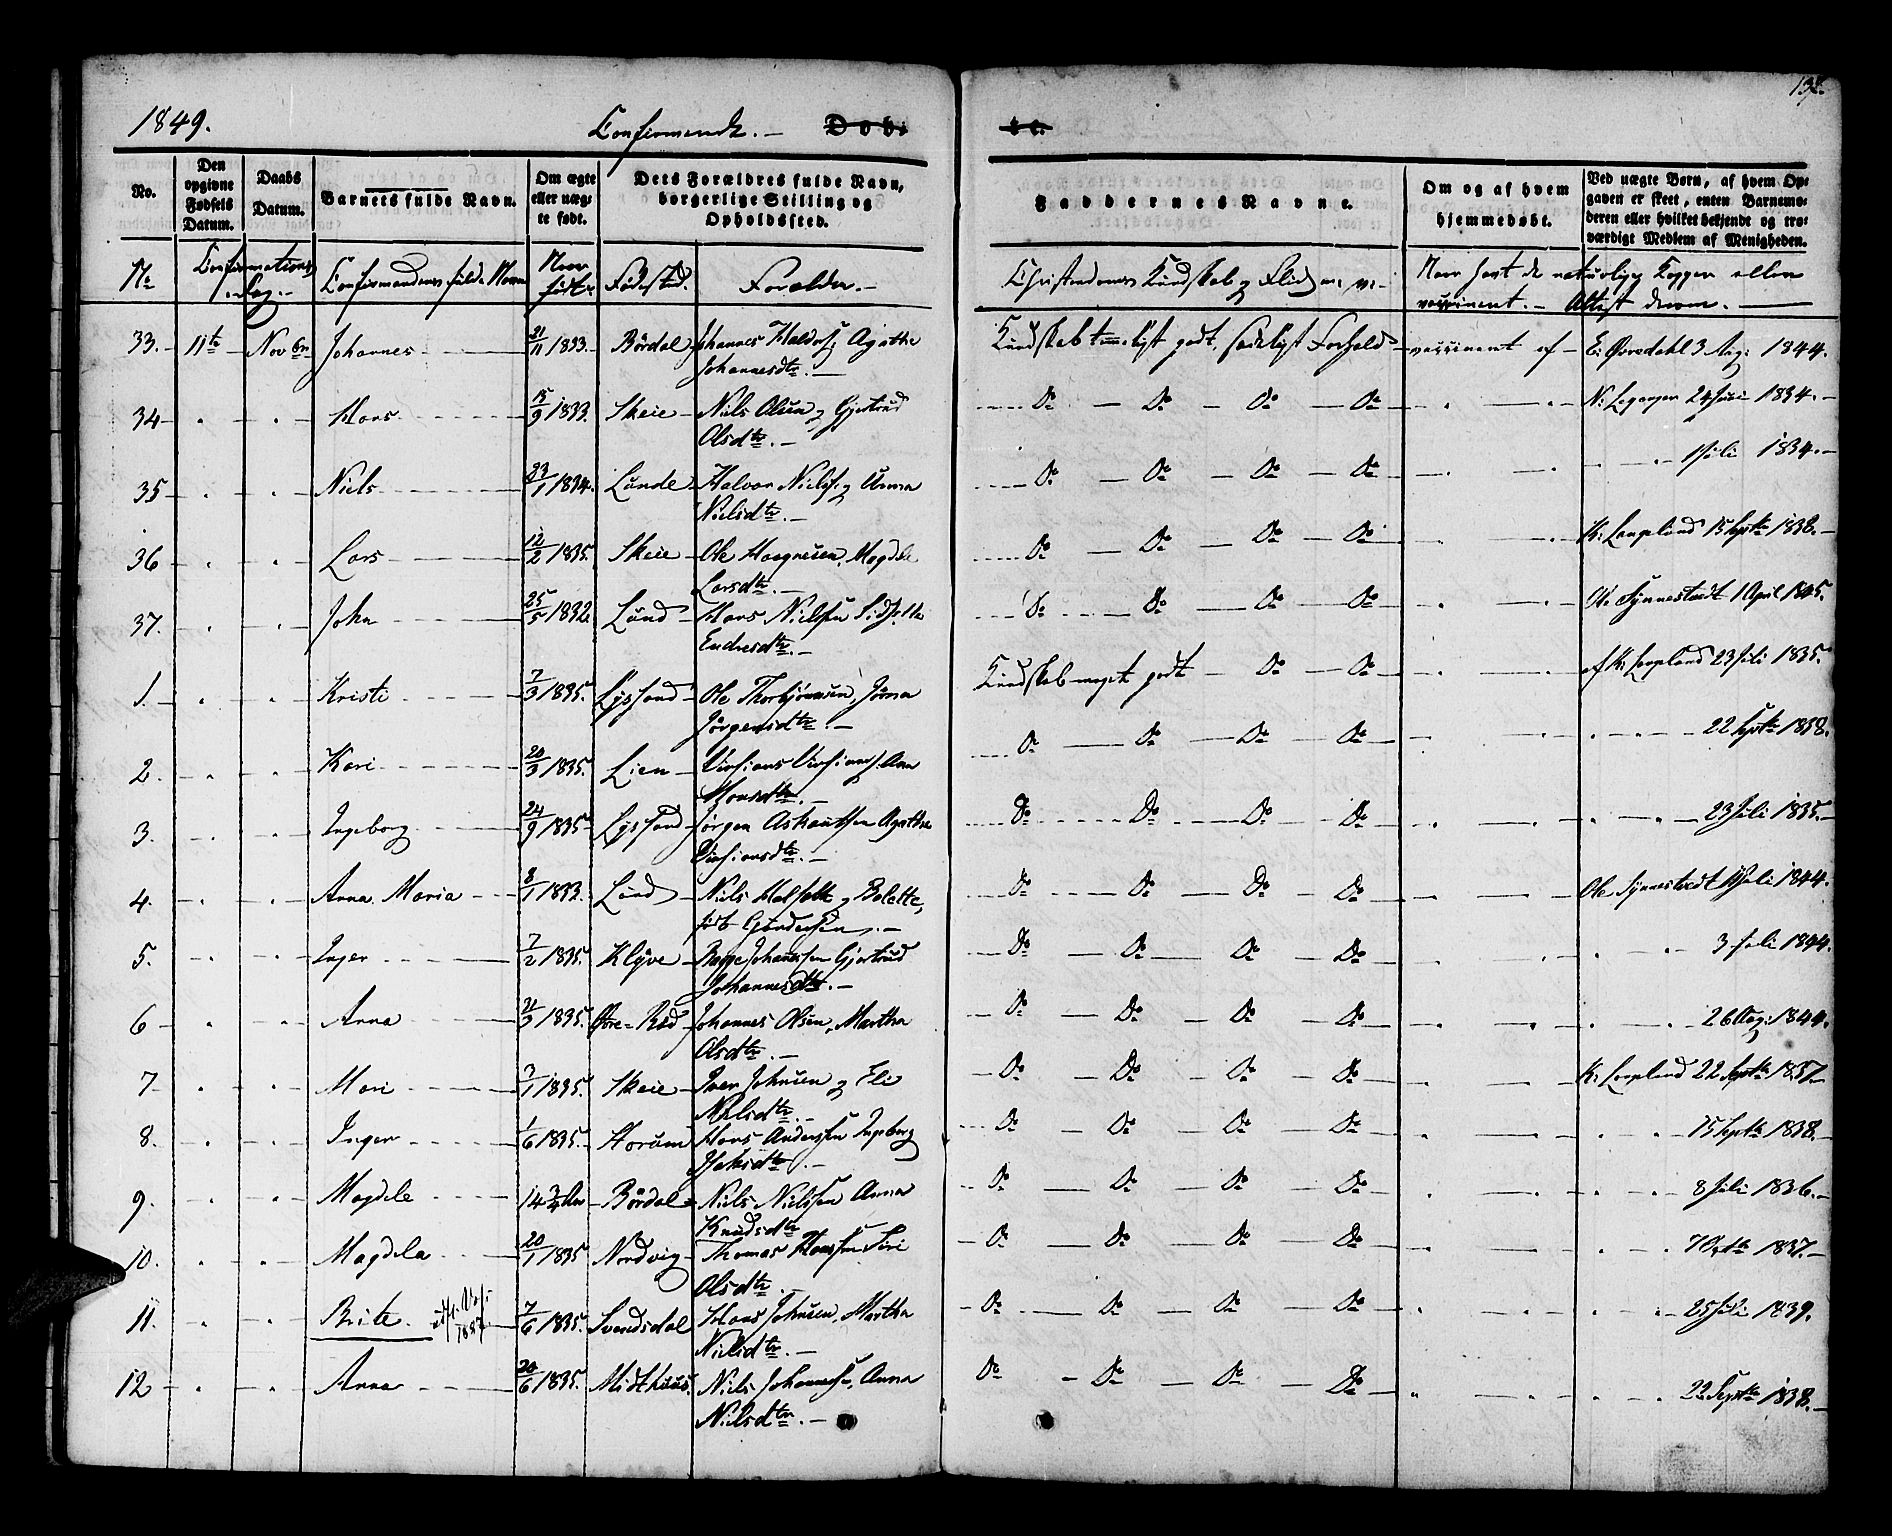 137.
1849. Confirmerede. — Døbte.
No.
Den opgivne Fødsels Datum.
Daabs Datum.
Barnets fulde Navn.
Om ægte eller uægte født.
Dets Forældres fulde Navn, borgerlige Stilling og Opholdssted.
Faddernes Navne.
Om og af hvem hjemmedøbt.
Ved uægte Børn, af hvem Opgaven er skeet, enten Barnemoderen eller hvilket bekjendt og troværdigt Medlem af Menigheden.
No Confirmations Dag. — Confirmandens fulde Navn Naar født Fødested. Forældre. — Christendoms Kundskab og Flid Naar havt de naturlige Kopper eller
vaccineret. — Attest derom. —
33. 11te Novbr Johannes 21/11 1833. Børdal Johannes Haldors. Agathe Kundskab temmeligt godt, sædeligt Forhold vaccineret af E. Øvredahl 3 Aug: 1844.
Johannesdtr. —
34 Hans 15/9 1833. Skeie Niels Olsen og Gjertrud Do Do Do Do 24 Juni 1834.
Olsdtr. —
35 Niels 23/1 1834. Lunde Halvor Niels. og Anna Do Do Do Do 1 Juli 1834.
Nielsdtr. —
36 Lars 12/2 1835. Skeie Ole Haagnusen, Magdele Do Do Do Do K. Langeland 15 Septbr 1838.
Larsdtr. —
37. John 25/5 1832. Lund Hans Nielsen Do Do Do Do Ole Synnestvedt 1 April 1845.
Endresdtr. —
1. Kristi 7/3 1835. Lyssand Ole Thorbjørnsen, Jørna Kundskab meget godt Do Do af K. Langeland 23 Juli 1835.
Jørgensdtr. —
2. Kari 20/3 1835. Lien Anna Do Do Do Do 22 Septbr 1838.
Monsdtr. —
3. Ingeborg 24/9 1835 Lyssand Jørgen Agatha Do Do Do Do 23 Juli 1835.
4. Anna Maria 8/1 1833. Lund Niels og Bolette, Do Do Do Do Ole Synnestvedt Juli 1844.
født
5. Inger 7/2 1835. Klyve Johannessen Gjertrud Do Do Do Do 3 Juli 1844.
Johannesdtr. —
6 Anna 1835. Øvre-Rød Johannes Olsen, Martha Do Do Do Do 26 Aug: 1844.
Olsdtr. —
7 Mari 3/1 1835. Skeie Iver Johnsen og Eli Do Do Do Do K. Langeland 22 Septbr 1837.
Nielsdtr. —
8. Inger 1/6 1835. Hans Anderssen Ingeborg Do Do Do Do 15 Septbr 1838.
9. Magdele 14 3/4 Aar Børdal Niels Nielssen Anna Do Do Do Do 8 Juli 1836.
Knudsdtr
10. Magdela 20/1 1835 Nordvig Thomas Hanssen Siri Do Do Do Do 7 Octbr 1837.
Olsdtr.
11. Brite 7/6 1835. Svendsdal Hans Johnsen, Martha Do Do Do Do 25 Juli 1839.
Nielsdtr. —
12 Anna 20/6 1835. Midthuus. Niels Johanness., Anna Do Do Do Do 22 Septbr 1838.
Nielsdtr. —